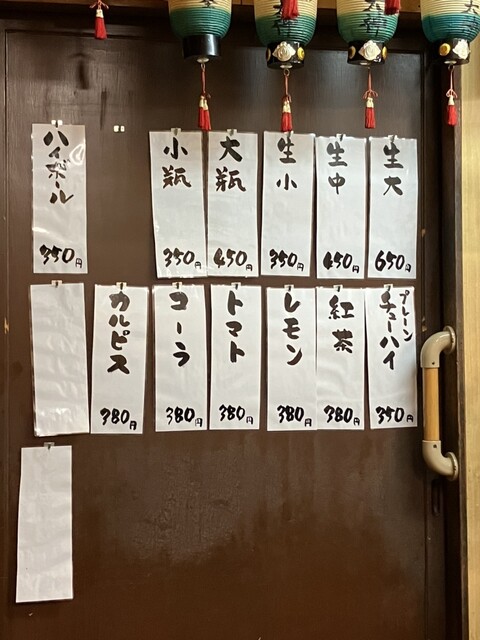 生大
650円
生中
450円
生小
350円
大瓶
450円
小瓶
350円
ハイボール
350円
プレーン
チューハイ
350円
紅茶
380円
レモン
380円
トマト
380円
コーラ
380円
カルピス
380円